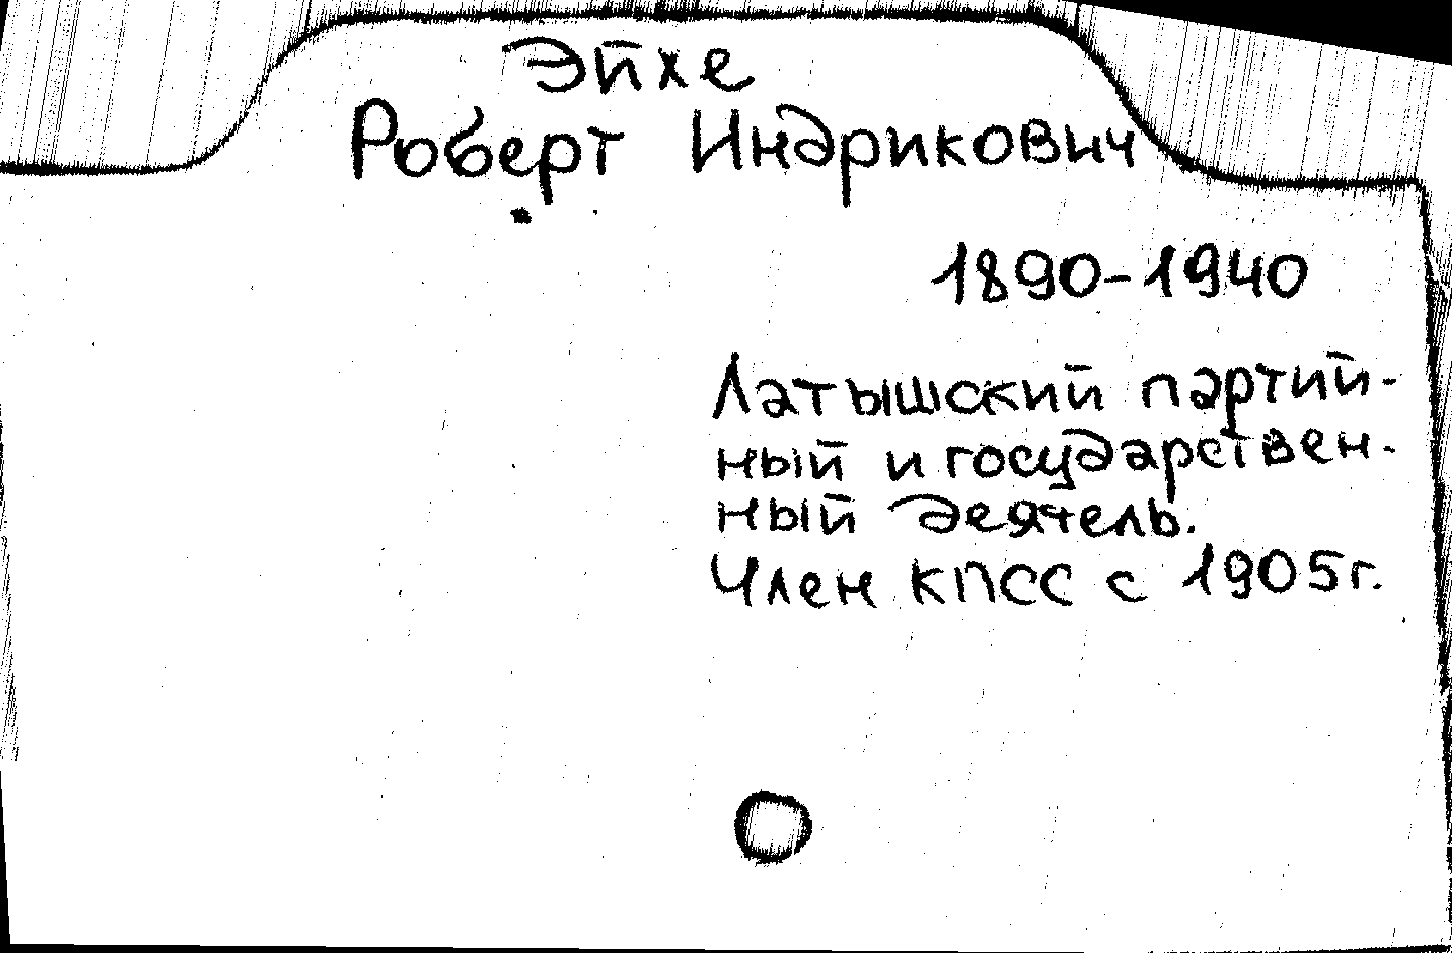 Эйхе
Роберт Индрикович
1890-1940
Латышский партий-
ный и государствен-
ный деятель.
Член КПСС с 1905г.